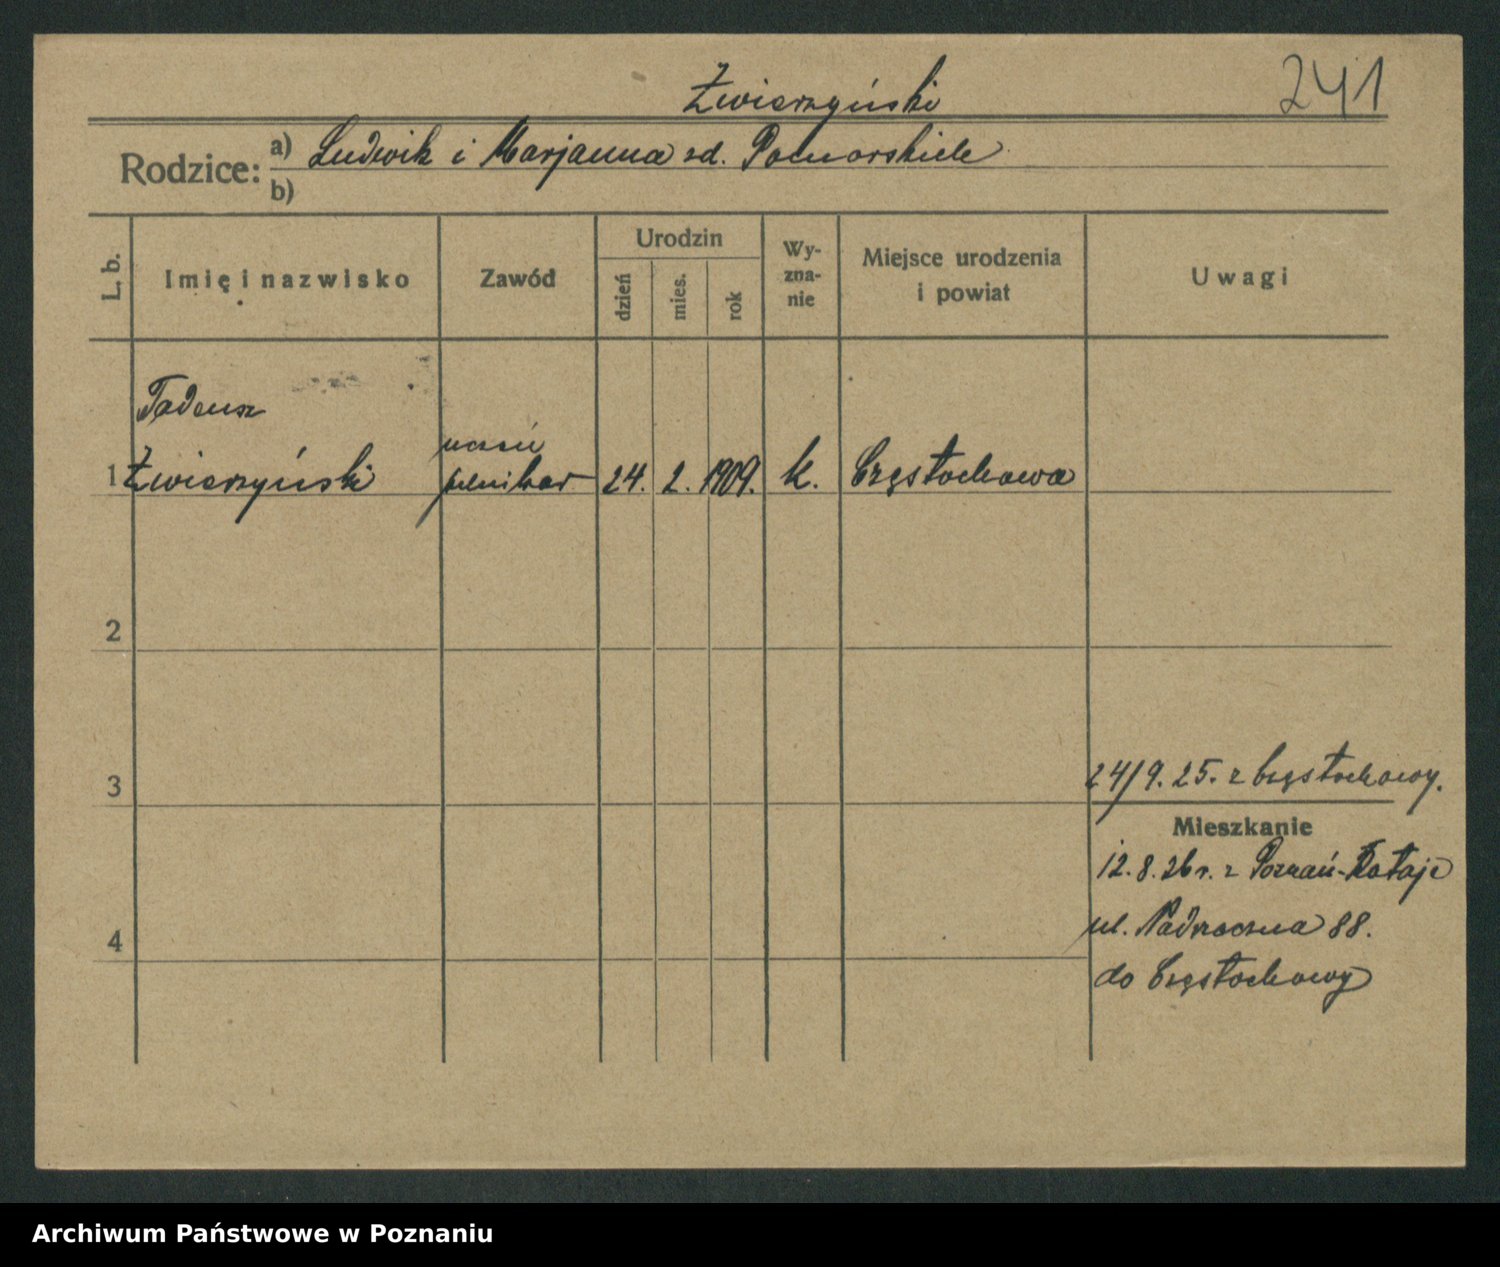 Zwierzyński 241
Rodzice: a) Ludwik i Marjanna zd. Pomorskich
b)
L. b. Imię i nazwisko Zawód Urodzin dzień mies. rok Wy-zna-nie Miejsce urodzenia i powiat Uwagi
Tadeusz
uczeń
1 Zwierzyński 24. 2. 1909. k. Częstochowa
2
3 24/9. 25. z Częstochowy.
Mieszkanie
12. 8. 26 r. z Poznań-Rataje
4 ul. Nadwoczna 88.
do Częstochowy
Archiwum Państwowe w Poznaniu